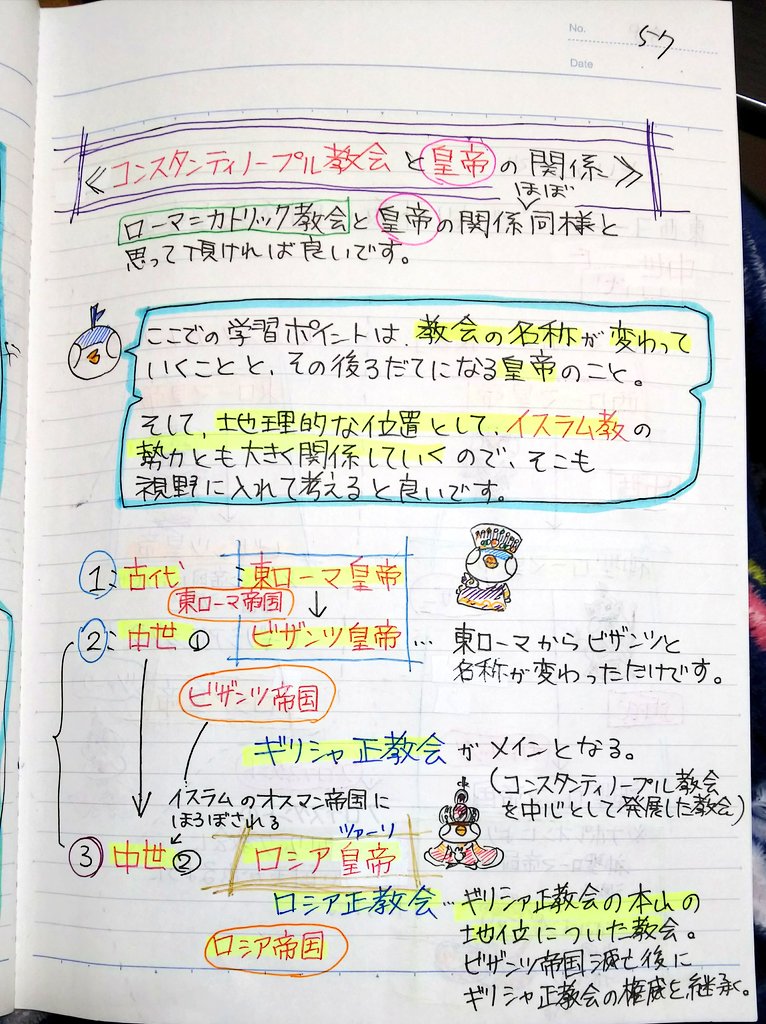 No. 57
Date
≪コンスタンティノープル教会と皇帝の関係≫
ほぼ
ローマ=カトリック教会と皇帝の関係同様と
思って頂ければ良いです。
ここでの学習ポイントは、教会の名称が変わって
いくことと、その後ろだてになる皇帝のこと。
そして、地理的な位置として、イスラム教の
勢力とも大きく関係していくので、そこも
視野に入れて考えると良いです。
①:古代:東ローマ皇帝
東ローマ帝国 ↓
②:中世① ビザンツ皇帝…
東ローマからビザンツと
名称が変わっただけです。
ビザンツ帝国
ギリシャ正教会がメインとなる。
(コンスタンティノープル教会
を中心として発展した教会)
イスラムのオスマン帝国に
ほろぼされる
ツァーリ
③ 中世② ロシア皇帝
ロシア正教会…ギリシア正教会の本山の
地位についた教会。
ロシア帝国
ビザンツ帝国滅亡後に
ギリシャ正教会の権威を継承。